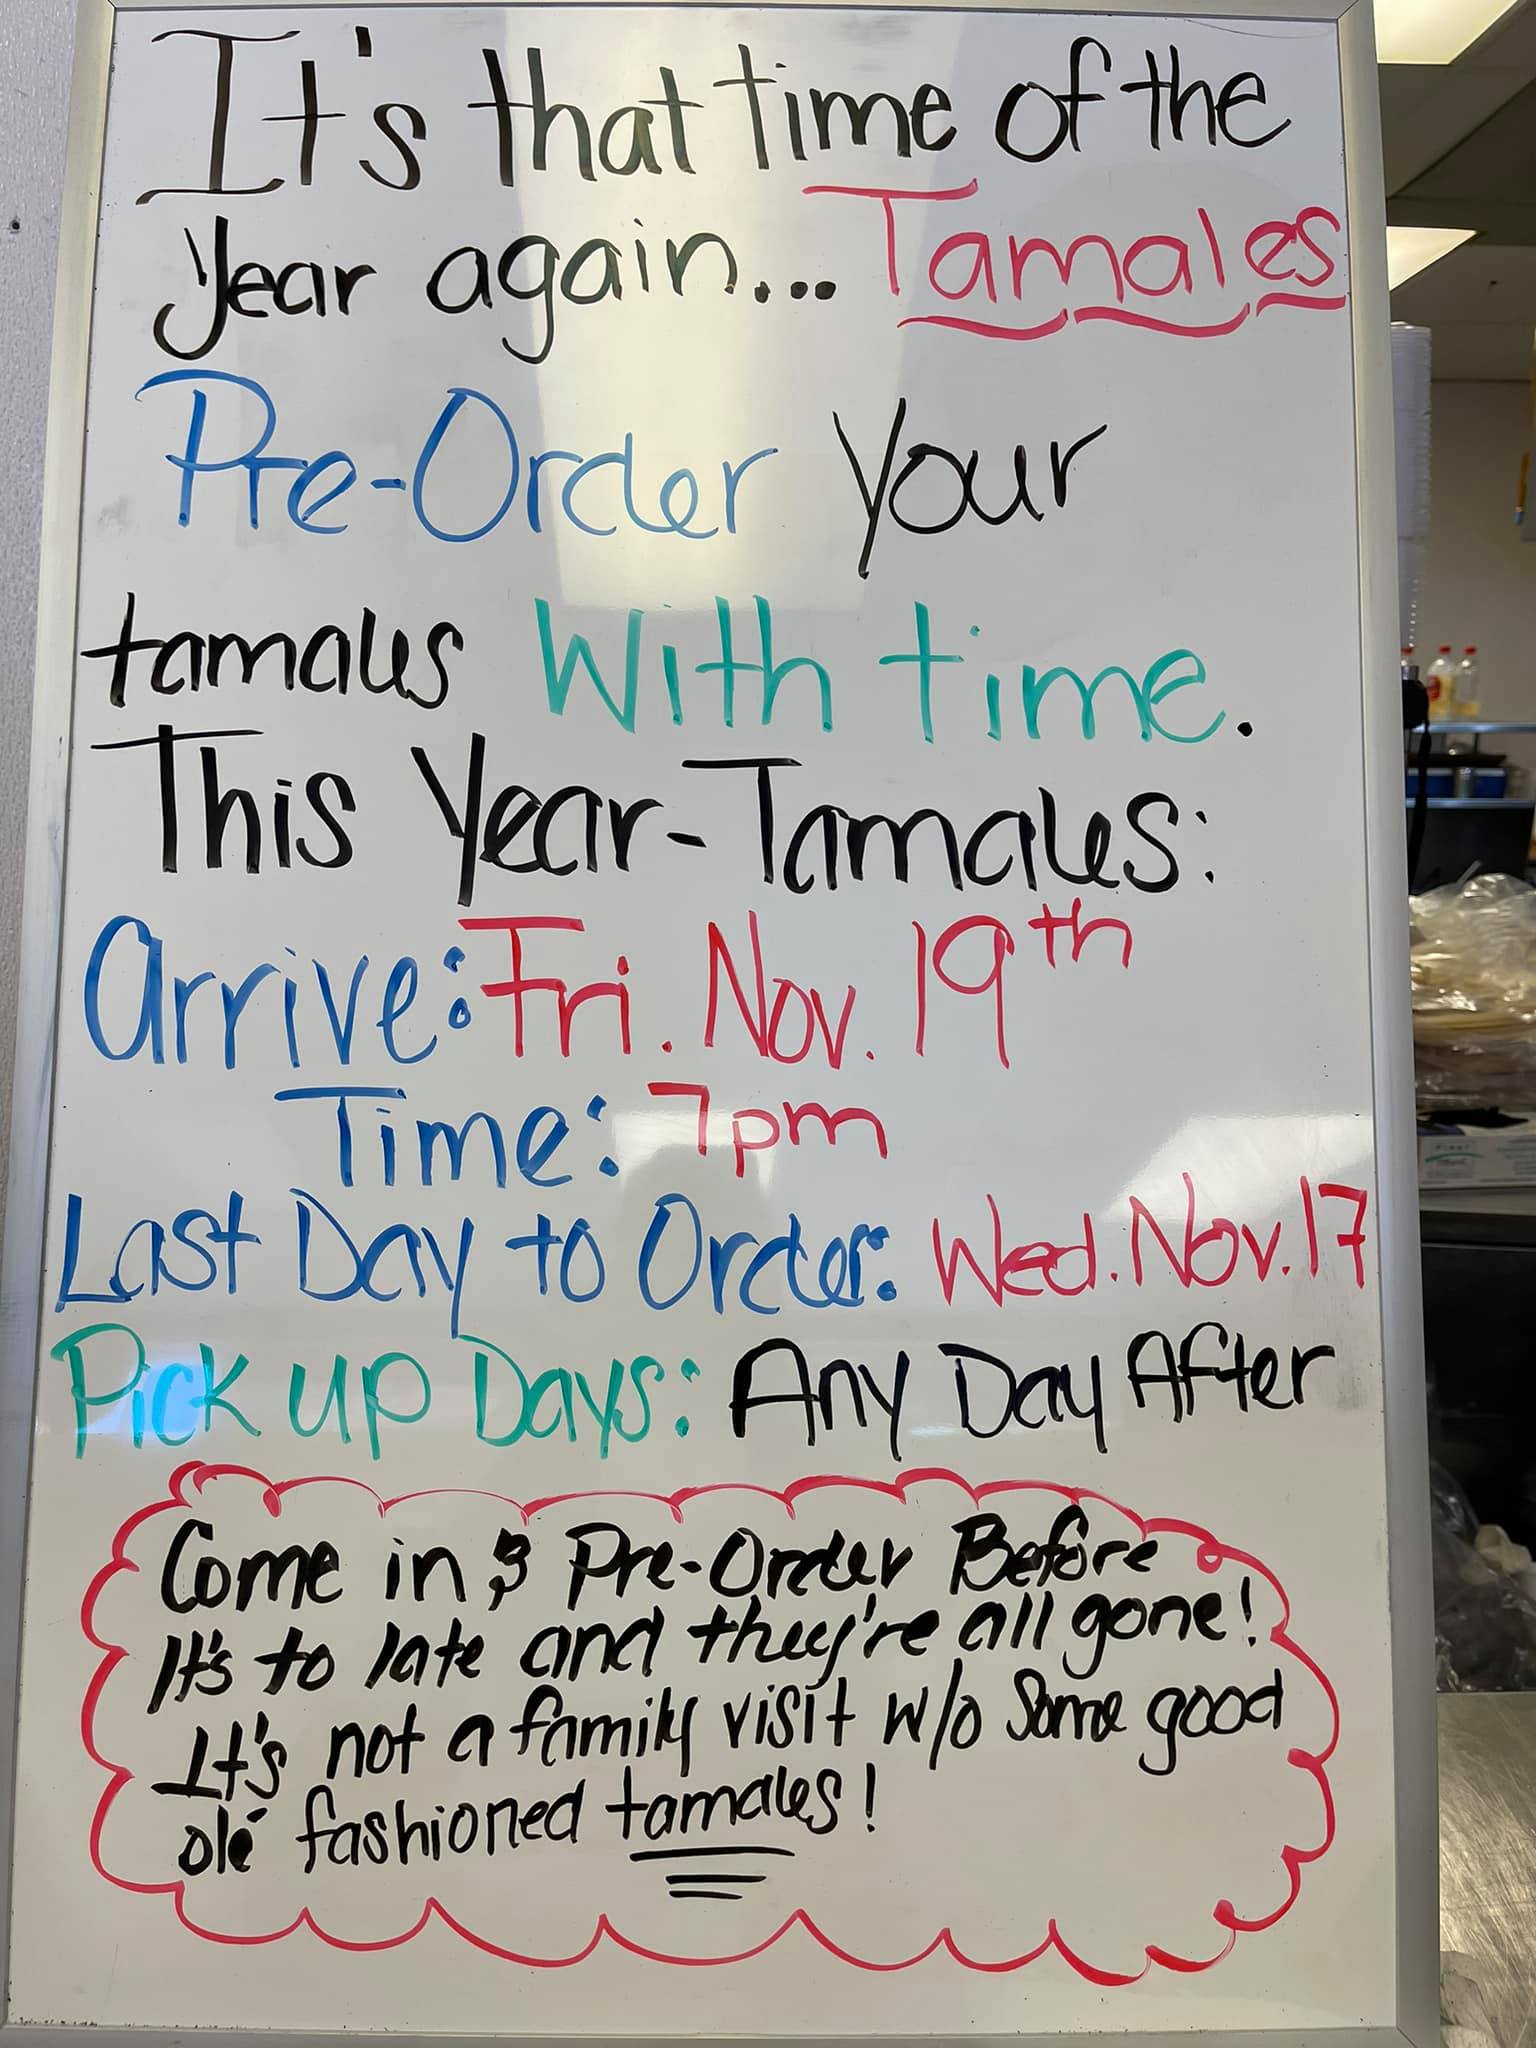 It's that time of the
year again... Tamales
Pre-Order your
tamales With time.
This Year-Tamales:
Arrive: Fri. Nov. 19th
Time: 7pm
Last Day to Order: Wed. Nov. 17
Pick up Days: Any Day After
Come in & Pre-Order Before
It's to late and they're all gone!
It's not a family visit w/o Some good
olé fashioned tamales!